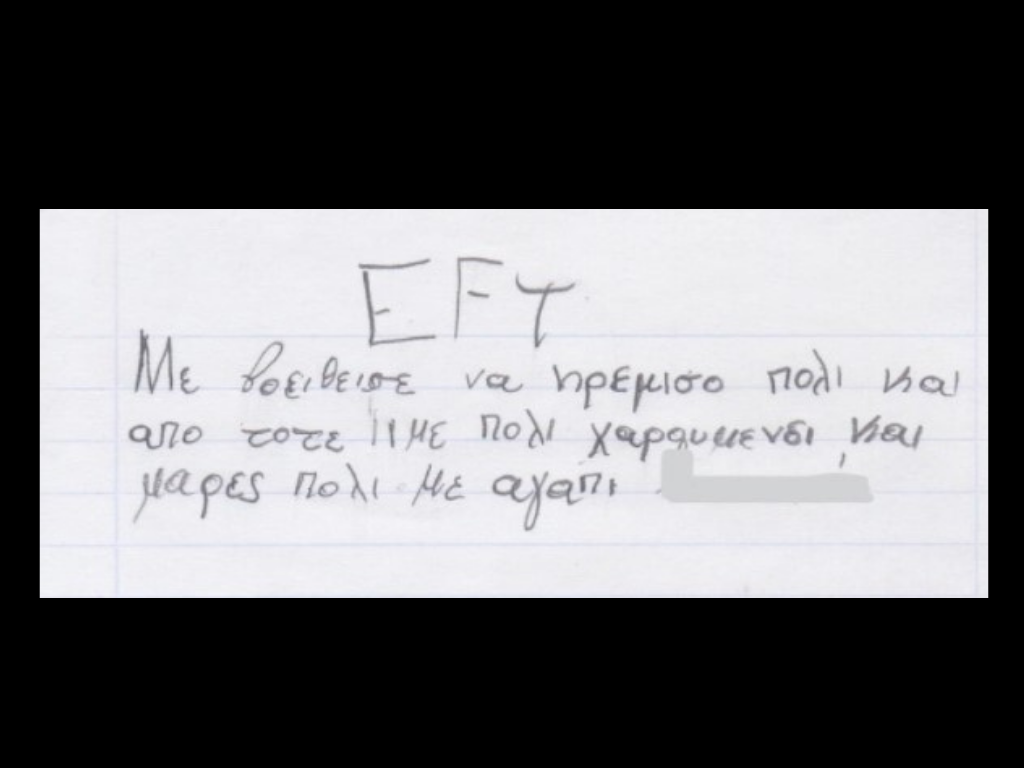 EFT
Με βοειθεισε να ηρεμισο πολι και
απο τοτε ιιμε πολι χαρουμενδι και
μαρες πολι με αγαπι